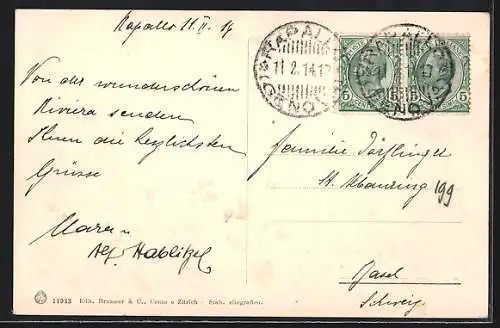 Rapallo 11. II. 14
Von der wunderschönen
Riviera senden
Ihnen die herzlichsten
Grüsse
Alf. Hablitzel
RAPALLO
11.2.14.17
GENOVA
5 5
Familie Dörflinger
St. 199
Basel
Schweiz
11913 Edit. Brunner & C., Como e Zürich - Stab. eliografico.